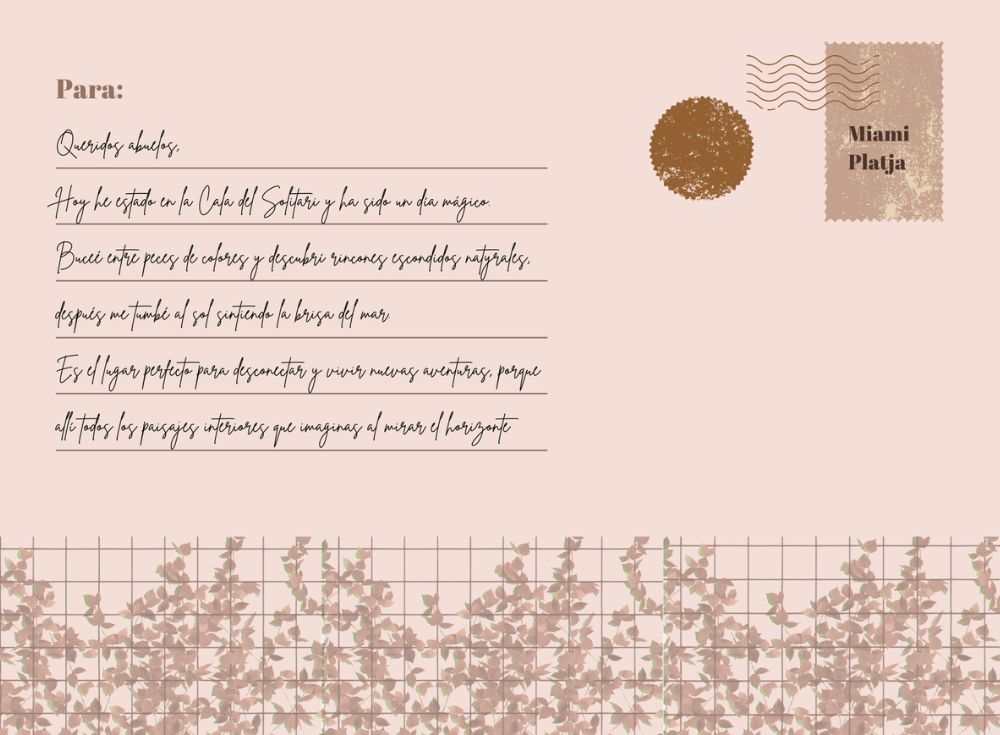 Para:
Queridos abuelos,
Hoy he estado en la Cala del Solitari y ha sido un dia mágico.
Buceé entre peces de colores y descubrí rincones escondidos natyrales,
después me tumbé al sol sintiendo la brisa del mar.
Es el lugar perfecto para desconectar y vivir nuevas aventuras, porque
allí todos los paisajes interiores que imaginas al mirar el horizonte
Miami
Platja